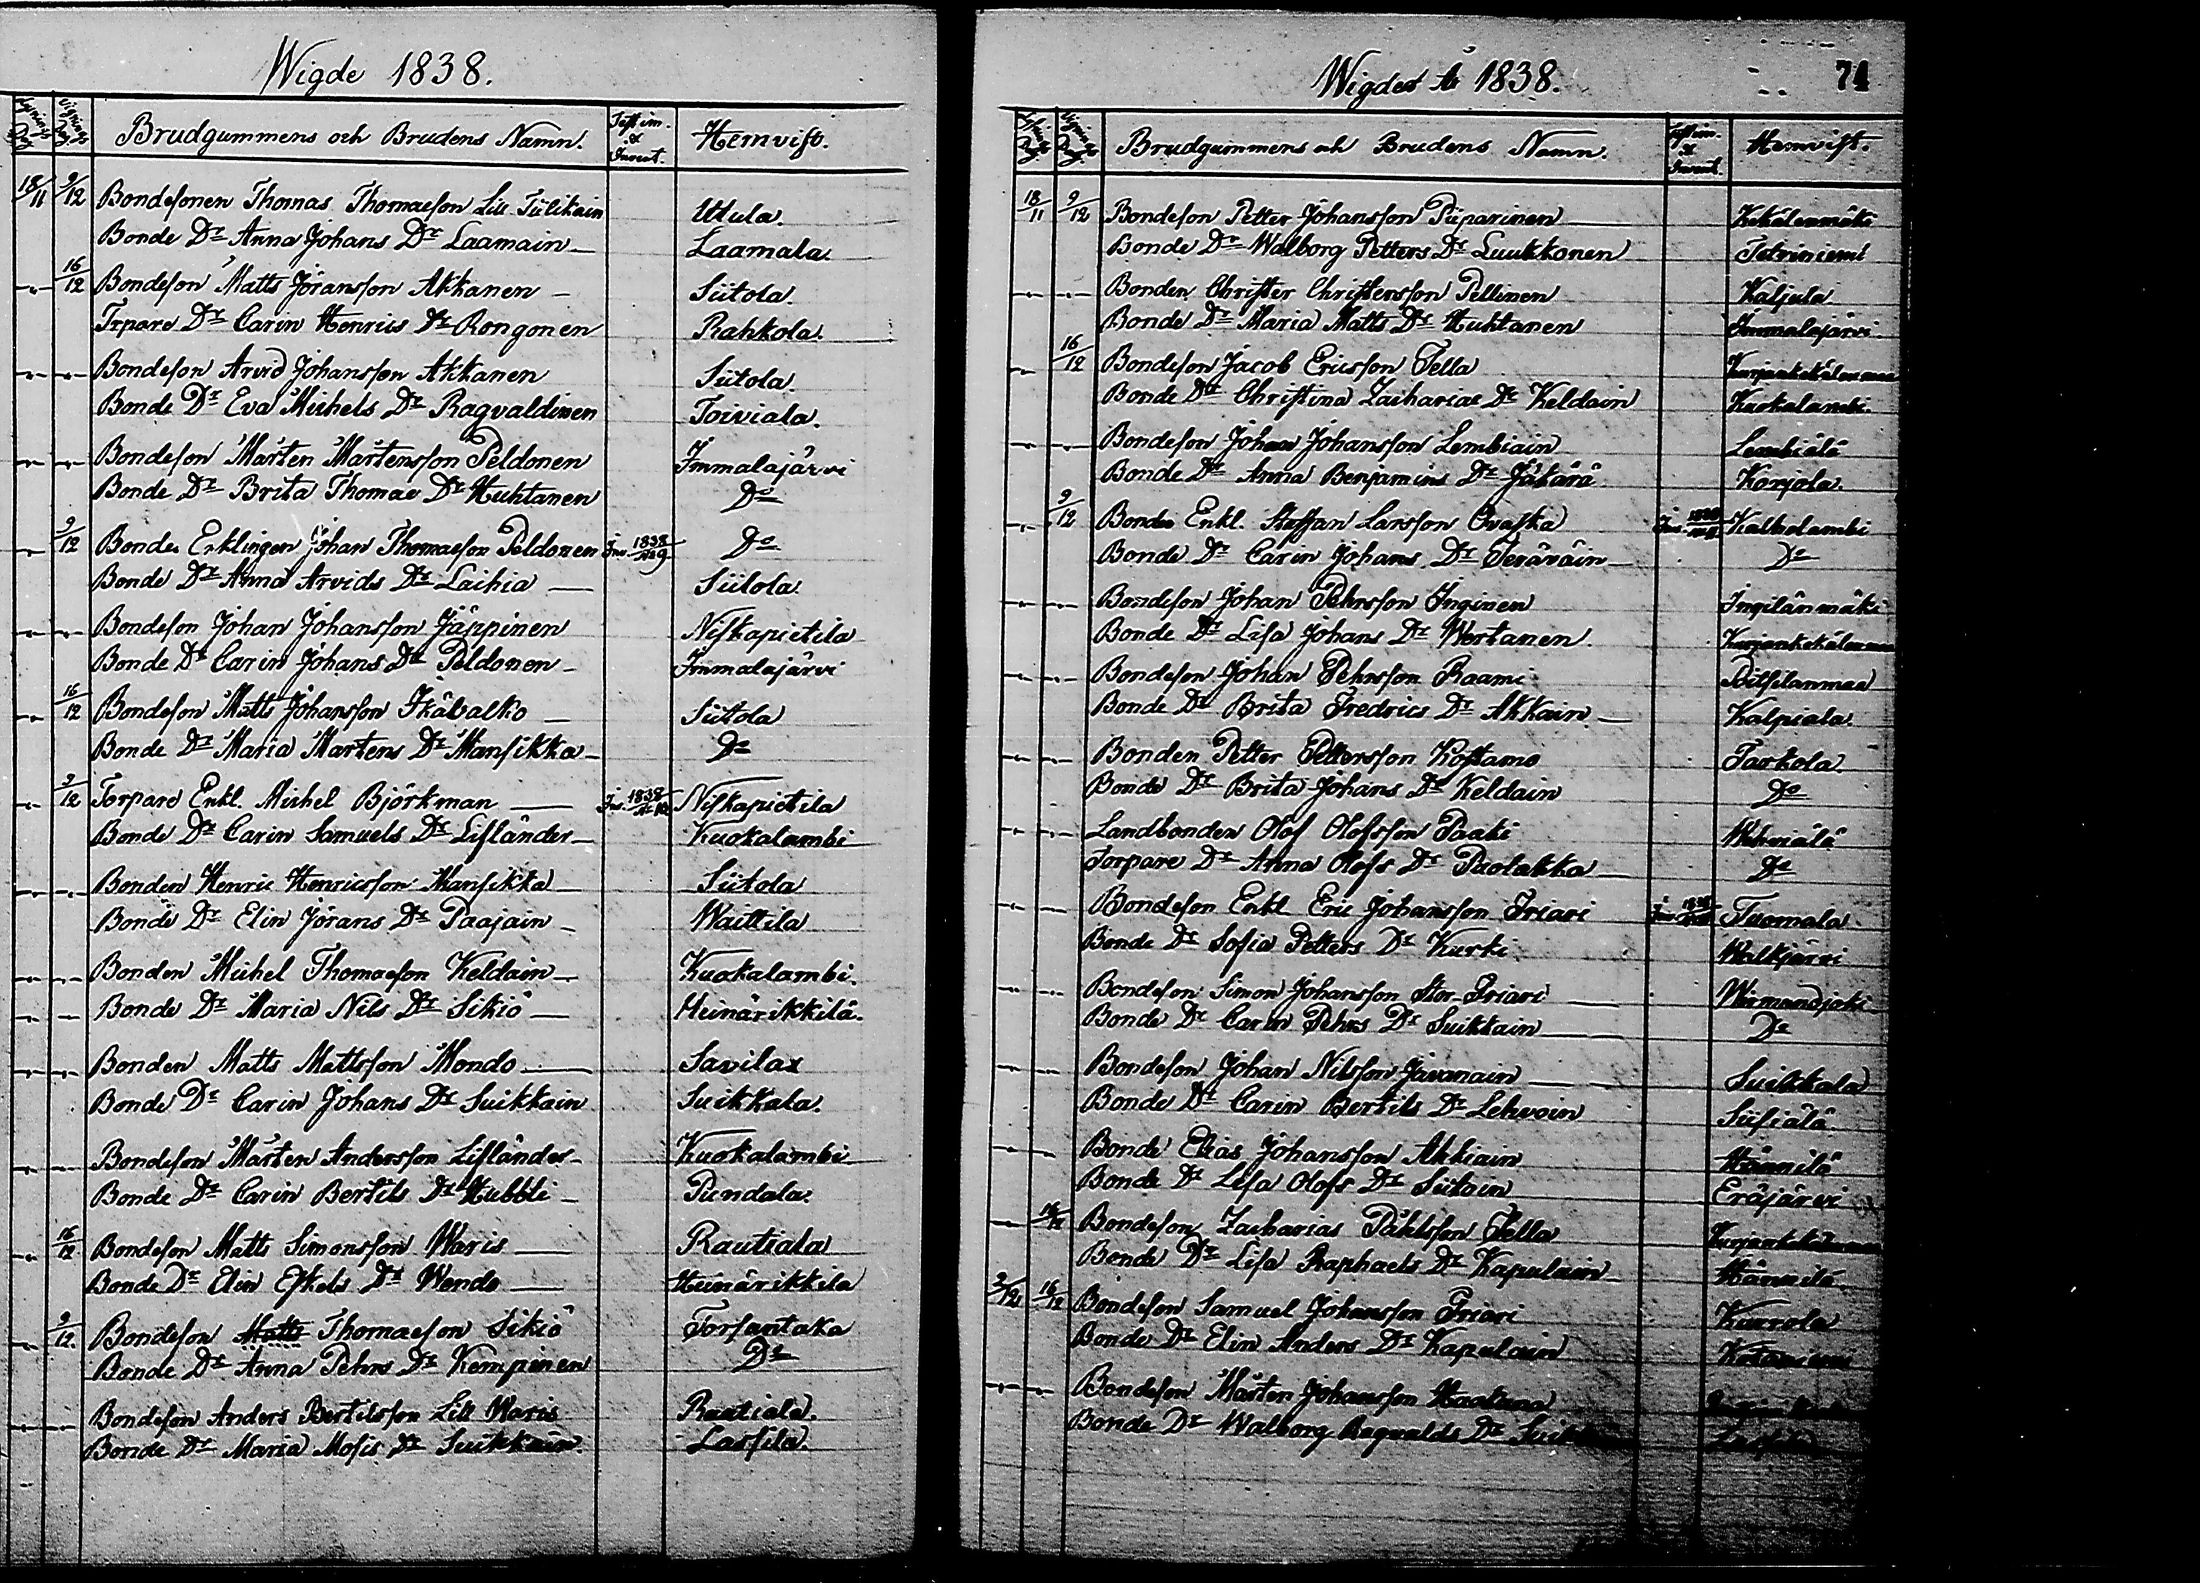 Wigde 1838.
Brudgummens och Brudens Namn. Test im. & Invent. Hemvist.
18/11 9/12 Bondesonen Thomas Thomasson Lill Tulikain Utula.
Bonde Dr Anna Johans Dr Laamain Laamala.
16/12 Bondeson Matts Jöransson Akkanen Siitola.
Trpare Dr Carin Henrics Dr Rongonen Rahkola.
Bondeson Arvid Johansson Akkanen Siitola.
Bonde Dr Eva Michels Dr Ragvaldinen Toiviala.
Bondeson Mårten Mårtensson Peldonen Immalajärvi
Bonde Dr Brita Thomae Dr Huhtanen Do
9/12 Bonde Enklingen Johan Thomasson Peldonen Inv. 1838 No 9 Do
Bonde Dr Anna Arvids Dr Laihia Siitola.
Bondeson Johan Johansson Jäppinen Niskapietila
Bonde Dr Carin Johans Dr Peldonen Immalajärvi
16/12 Bondeson Matts Johansson Ikävalko Siitola
Bonde Dr Maria Mårtens Dr Mansikka Do
9/12 Torpare Enkl. Michel Björkman Inv. 1838 Niskapietila
Bonde Dr Carin Samuels Dr Lifländer Kuokalambi
Bonden Henric Henricsson Mansikka Siitola
Bonde Dr Elin Jörans Dr Paajain Waittila
Bonden Michel Thomasson Keldain Kuokalambi.
Bonde Dr Maria Nils Dr Sikiö Heinärikkilä.
Bonden Matts Mattsson Mondo Savilax
Bonde Dr Carin Johans Dr Suikkain Suikkala.
Bondeson Mårten Andersson Lifländer Kuokalambi
Bonde Dr Carin Bertils Dr Hubbli Pundala.
16/12 Bondeson Matts Simonsson Waris Rautiala
Bonde Dr Elin Eskels Dr Wondo Heinärikkila
9/12 Bondeson Matts Thomaeson Sikiö Torsantaka
Bonde Dr Anna Pehrs Dr Kempinen Do
Bondeson Anders Bertilsson Lill Waris Rautiala.
Bonde Dr Maria Mosis Dr Suikkain Lassila.
Wigde År 1838. 74
Brudgummens och Brudens Namn. Test im. & Invent. Hemvist.
18/11 9/12 Bondeson Petter Johansson Piiparinen Kekäleenmäki
Bonde Dr Walborg Petters Dr Luukkonen Tetriniemi
Bonden Christer Christersson Pellinen Kaljula
Bonde Dr Maria Matts Dr Huhtanen Immalajärvi
16/12 Bondeson Jacob Ericsson Tella
Bonde Dr Christina Zacharias Dr Keldain Kuokalambi.
Bondeson Johan Johansson Lembiain Lembiälä
Bonde Dr Anna Benjamins Dr Jäkärä Konjola.
9/12 Bonde Enkl. Staffan Larsson Ovaska Inv. 1838 Kalholambi
Bonde Dr Carin Johans Dr Teräväin Do
Bondeson Johan Pehrsson Inginen Ingilänmäki
Bonde Dr Lisa Johans Dr Wertanen
Bondeson Johan Pehrsson Raami Poitsilanmaa
Bonde Dr Brita Fredrics Dr Akkain Kalpiala.
Bonden Petter Pettersson Kostamo Tarkola.
Bonde Dr Brita Johans Dr Keldain Do
Landbonden Olof Olofsson Paaki
Torpare Dr Anna Olofs Dr Paolakka Do
Bondeson Enkl Eric Johansson Friari Tuomala
Bonde Dr Sofia Petters Dr Kurki Walkjärvi
Bondeson Simon Johansson Stor-Friari
Bonde Dr Carin Pehrs Dr Suikkain Do
Bondeson Johan Nilsson Javanain Suikkala
Bonde Dr Carin Bertils Dr Lehvoin Siisiälä
Bonde Elias Johansson Akkiain Hännilä
Bonde Dr Lisa Olofs Dr Siitoin Eräjärvi
16/12 Bondeson Zacharias Påhlsson Tella
Bonde Dr Lisa Raphaels Dr Kapulain Hännilä
2/12 16/12 Bondeson Samuel Johansson Friari Kurrola
Bonde Dr Elin Anders Dr Kapulain Kotaniemi
Bondeson Mårten Johansson Haatana
Bonde Dr Walborg Ragvalds Dr